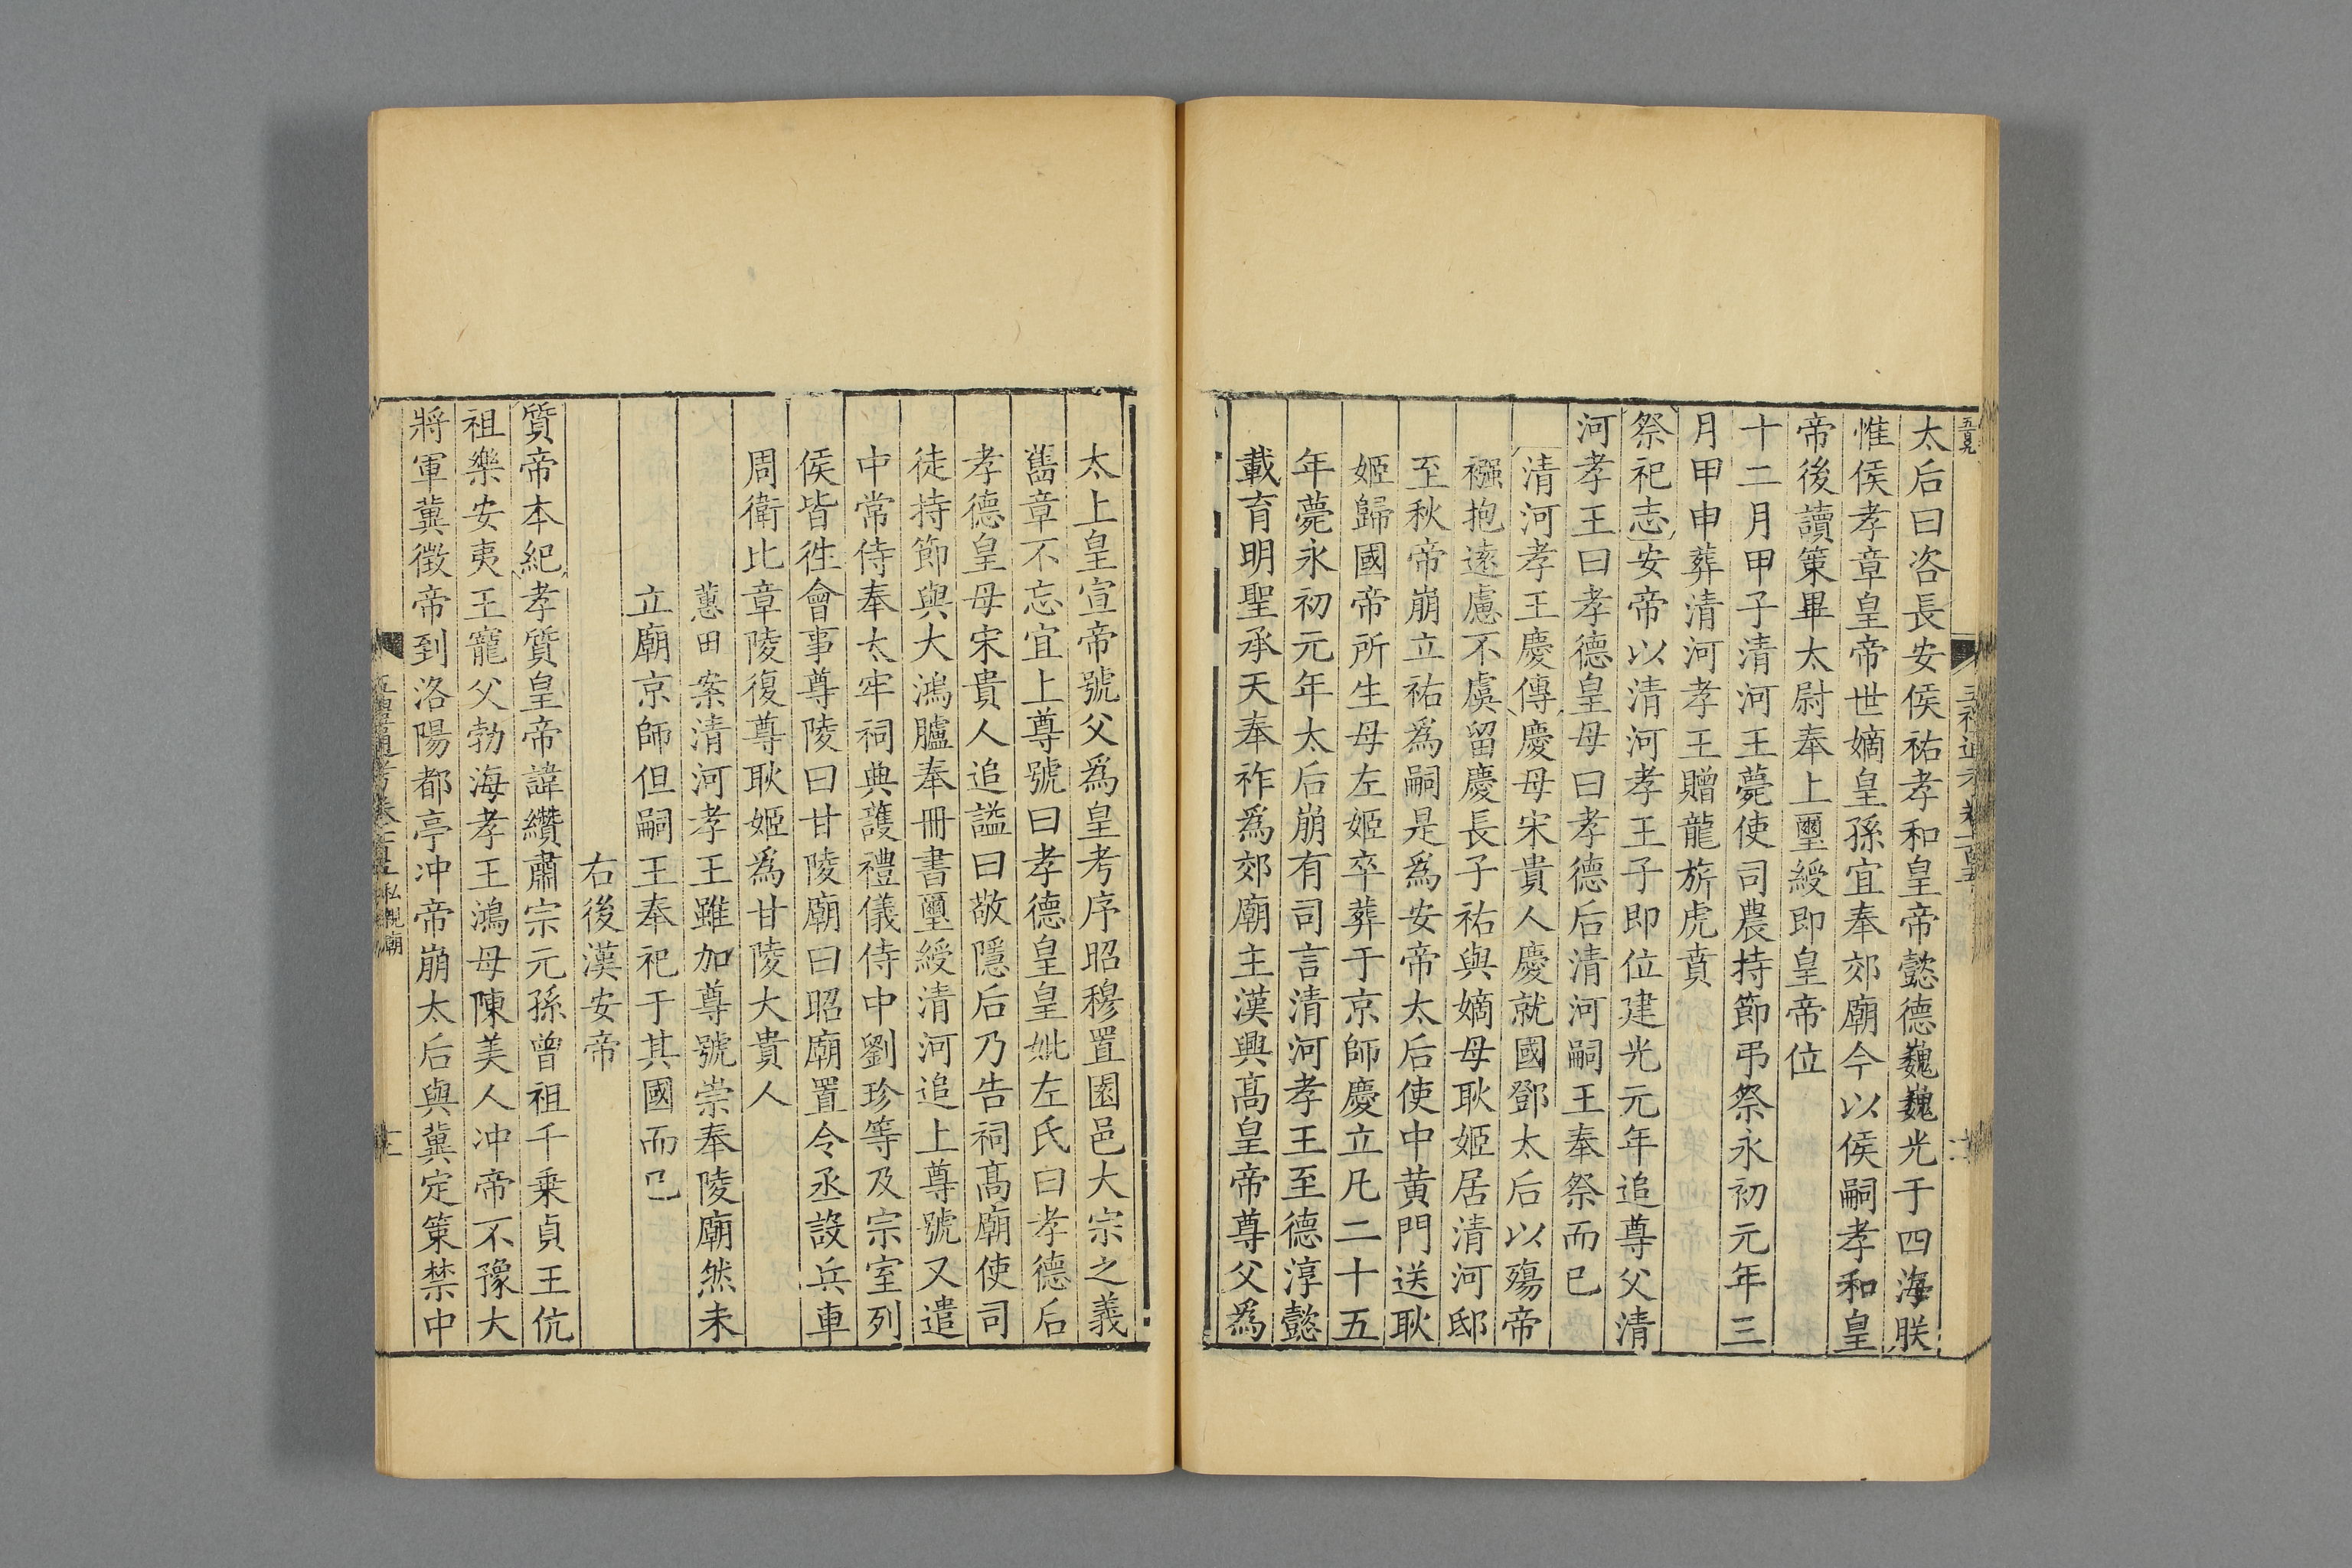 太后曰咨長安侯祐孝和皇帝懿德巍巍光于四海朕
惟侯孝章皇帝世嫡皇孫宜奉郊廟今以侯嗣孝和皇
帝後讀策畢太尉奉上璽綬即皇帝位
十二月甲子清河王薨使司農持節弔祭永初元年三
月甲申葬清河孝王贈龍旂虎賁
祭祀志安帝以清河孝王子即位建光元年追尊父清
河孝王曰孝德皇母曰孝德后清河嗣王奉祭而已
清河孝王慶傳慶母宋貴人慶就國鄧太后以殤帝
襁抱遠慮不虞留慶長子祐與嫡母耿姬居清河邸
至秋帝崩立祐爲嗣是爲安帝太后使中黃門送耿
姬歸國帝所生母左姬卒葬于京師慶立凡二十五
年薨永初元年太后崩有司言清河孝王至德淳懿
載育明聖承天奉祚爲郊廟主漢興高皇帝尊父爲
太上皇宣帝號父爲皇考序昭穆置園邑大宗之義
舊章不忘宜上尊號曰孝德皇皇妣左氏曰孝德后
孝德皇母宋貴人追諡曰敬隱后乃告祠高廟使司
徒持節與大鴻臚奉冊書璽綬清河追上尊號又遣
中常侍奉太牢祠典護禮儀侍中劉珍等及宗室列
侯皆徃會事尊陵曰甘陵廟曰昭廟置令丞設兵車
周衛比章陵復尊耿姬爲甘陵大貴人
蕙田案清河孝王雖加尊號崇奉陵廟然未
立廟京師但嗣王奉祀于其國而已
右後漢安帝
質帝本紀孝質皇帝諱纘肅宗元孫曾祖千乗貞王伉
祖樂安夷王寵父勃海孝王鴻母陳美人冲帝不豫大
將軍冀徵帝到洛陽都亭冲帝崩太后與冀定策禁中